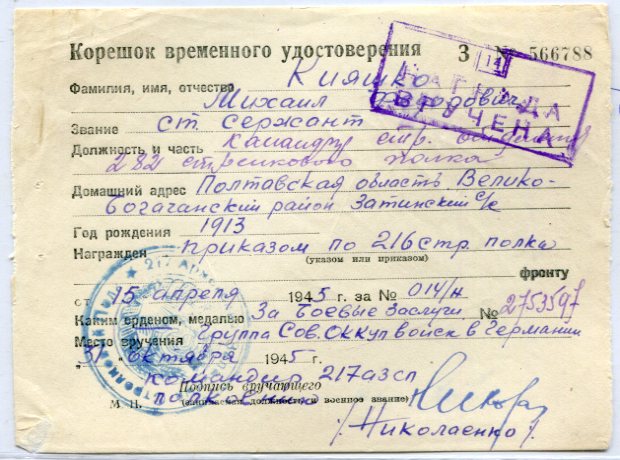 Корешок временного удостоверения З № 566788
14
НАГРАДА
ВРУЧЕНА
Фамилия, имя, отчество Кияшко
Михаил Федорович
Звание ст. сержант
Должность и часть Командир стр. отделения
282 стрелкового полка
Домашний адрес Полтавская область Велико-
Богачанский район Затинский с/с
Год рождения 1913
Награжден приказом по 216 стр. полка
(указом или приказом)
фронту
от 15 апреля 1945 г. за № 014/н
Каким орденом, медалью За Боевые Заслуги № 2753597
Место вручения Группа Сов. Оккуп войск в Германии
31 октября 1945 г.
Командир 217 азсп
Подпись вручающего
полковник
М. П. (занимаемая должность и военное звание)
/Николаенко/